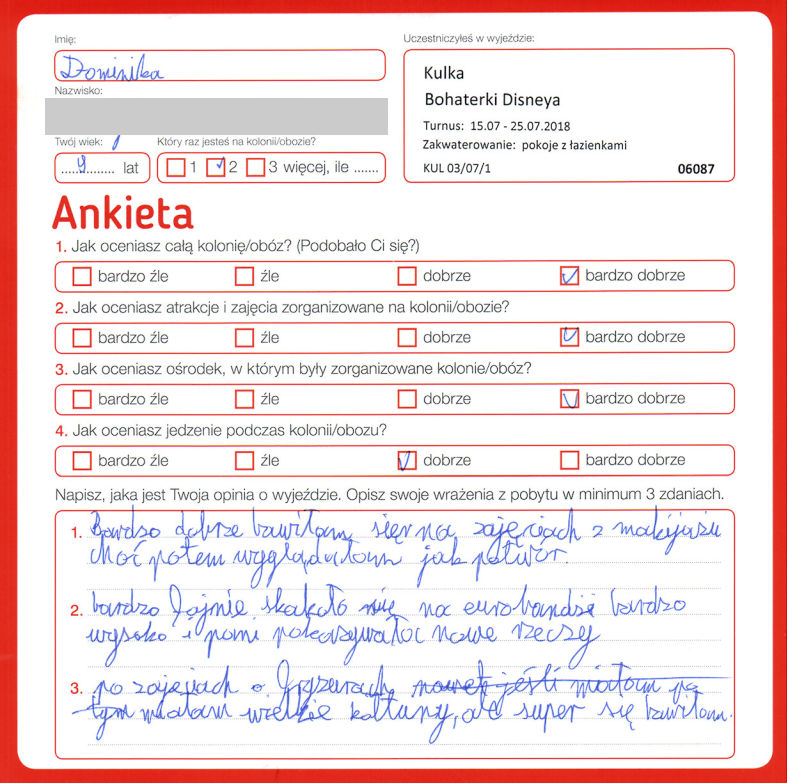 Imię:
Dominika
Uczestniczyłeś w wyjeździe:
Kulka
Bohaterki Disneya
Turnus: 15.07 - 25.07.2018
Zakwaterowanie: pokoje z łazienkami
KUL 03/07/1 06087
Nazwisko:
Twój wiek: Który raz jesteś na kolonii/obozie?
9 lat 1 2 3 więcej, ile .......
Ankieta
1. Jak oceniasz całą kolonię/obóz? (Podobało Ci się?)
bardzo źle źle dobrze bardzo dobrze
2. Jak oceniasz atrakcje i zajęcia zorganizowane na kolonii/obozie?
bardzo źle źle dobrze bardzo dobrze
3. Jak oceniasz ośrodek, w którym były zorganizowane kolonie/obóz?
bardzo źle źle dobrze bardzo dobrze
4. Jak oceniasz jedzenie podczas kolonii/obozu?
bardzo źle źle dobrze bardzo dobrze
Napisz, jaka jest Twoja opinia o wyjeździe. Opisz swoje wrażenia z pobytu w minimum 3 zdaniach.
1. Bardzo dobrze bawiłam się na zajęciach z makijażu
choć potem wyglądałam jak potwór.
2. bardzo fajnie skakało się na eurobandzi bardzo
wysoko i pani pokazywała nowe rzeczy
3. po zajęciach o fryzurach nawet jeśli miałam po
tym miałam wielkie kołtuny, ale super się bawiłam.